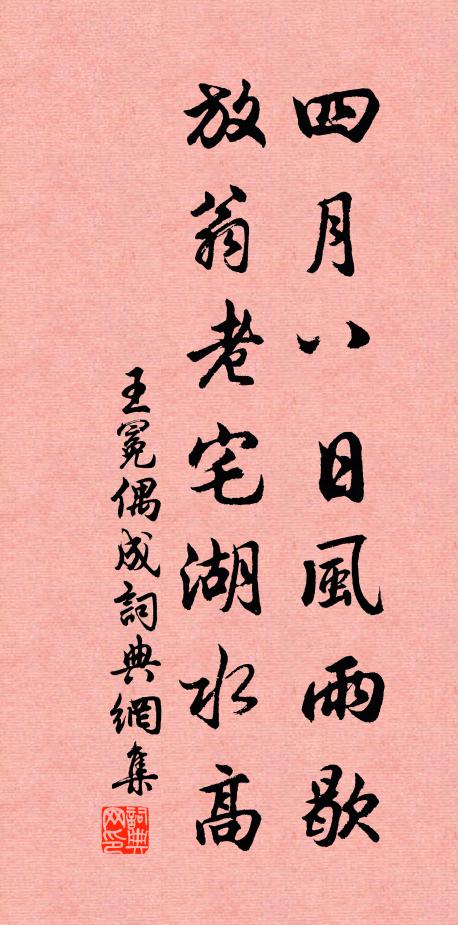 四月八日風雨歇
放翁老宅湖水高
王冕偶成詞典網集
詞典网印